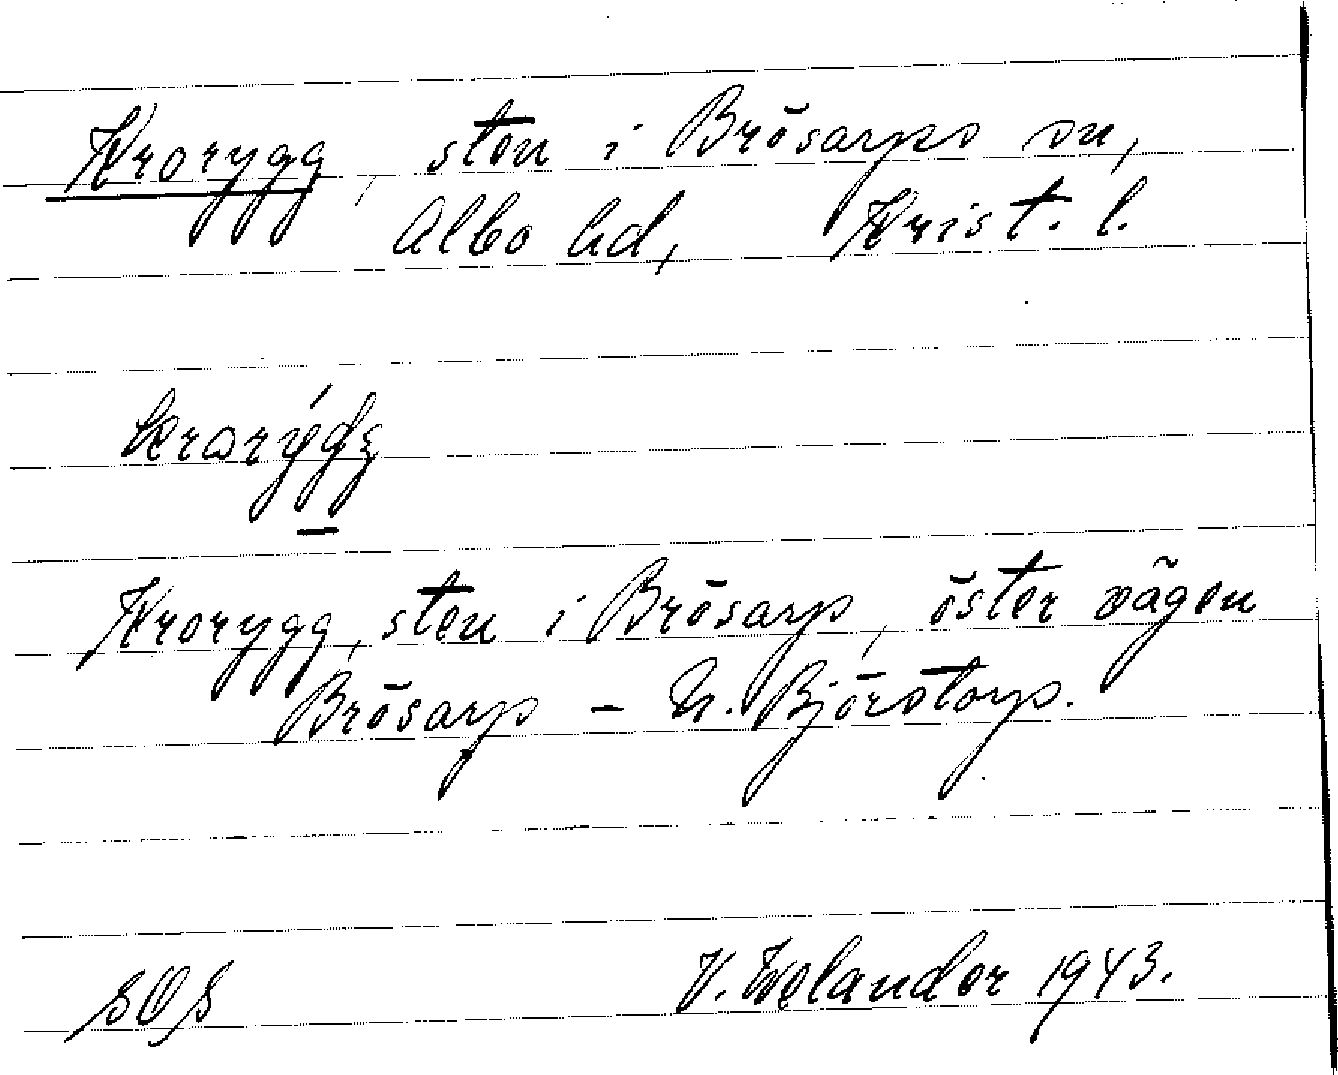 Krorygg, sten i Brösarps sn,
Albo hd, Krist. l.
Krorygg, sten i Brösarp, öster vägen
Brösarp - N. Björstorp.
SOS V. Welander 1943.